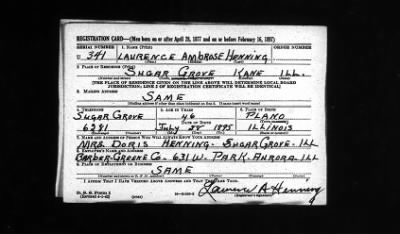 REGISTRATION CARD—(Men born on or after April 28, 1877 and on or before February 16, 1897)
SERIAL NUMBER 1. NAME (Print) ORDER NUMBER
U 341 LAURENCE AMBROSE HENNING
(First) (Middle) (Last)
2. PLACE OF RESIDENCE (Print)
SUGAR GROVE KANE ILL.
[THE PLACE OF RESIDENCE GIVEN ON THE LINE ABOVE WILL DETERMINE LOCAL BOARD
JURISDICTION; LINE 2 OF REGISTRATION CERTIFICATE WILL BE IDENTICAL]
3. MAILING ADDRESS
SAME
[Mailing address if other than place indicated on line 2. If same insert word same]
4. TELEPHONE 5. AGE IN YEARS 6. PLACE OF BIRTH
SUGAR GROVE 46 PLANO
DATE OF BIRTH
6281 July 28 1895 ILLINOIS
7. NAME AND ADDRESS OF PERSON WHO WILL ALWAYS KNOW YOUR ADDRESS
MRS. DORIS HENNING- SUGAR GROVE- ILL
8. EMPLOYER'S NAME AND ADDRESS
BARBER-GREENE CO. 631 W. PARK. AURORA. ILL
9. PLACE OF EMPLOYMENT OR BUSINESS
SAME
I AFFIRM THAT I HAVE VERIFIED ABOVE ANSWERS AND THAT THEY ARE TRUE.
D. S. S. Form 1
Laurence A Henning